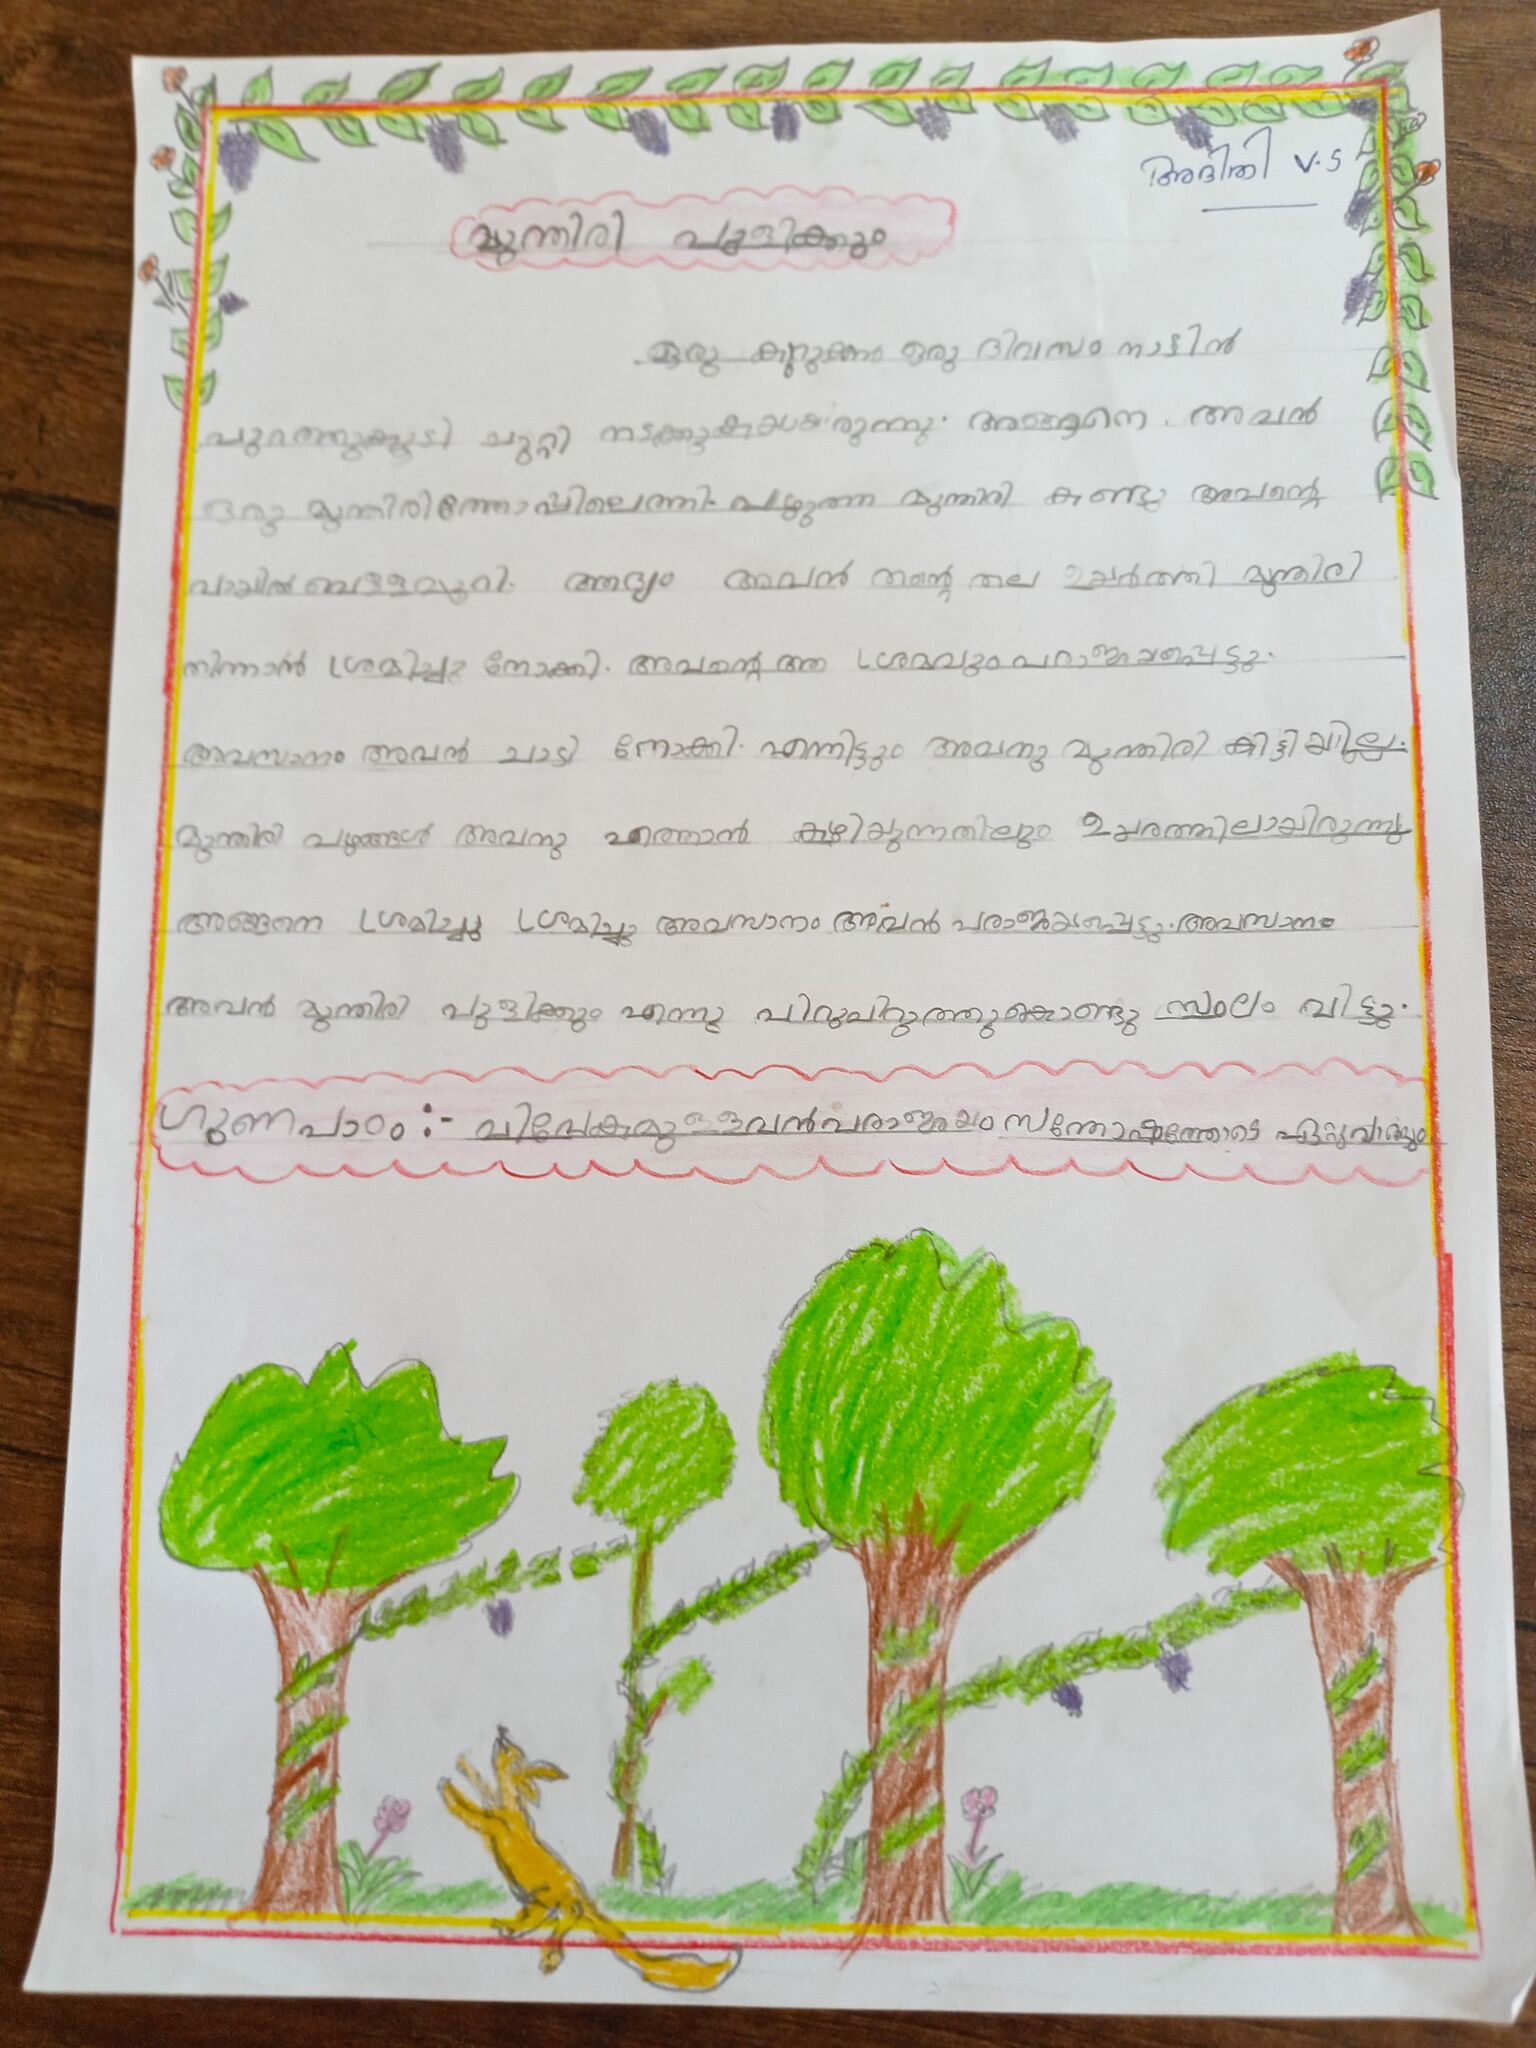 അദിതി V.S
മുന്തിരി പുളിക്കും
ഒരു കുറുക്കൻ ഒരു ദിവസം നാട്ടിൻ
പുറത്തുകൂടി ചുറ്റി നടക്കുകയായിരുന്നു. അങ്ങനെ. അവൻ
ഒരു മുന്തിരിത്തോപ്പിലെത്തി. പഴുത്ത മുന്തിരി കണ്ടു അവന്റെ
വായിൽ വെള്ളമൂറി. ആദ്യം അവൻ തന്റെ തല ഉയർത്തി മുന്തിരി
തിന്നാൻ ശ്രമിച്ചു നോക്കി. അവന്റെ ആ ശ്രമവും പരാജയപ്പെട്ടു.
അവസാനം അവൻ ചാടി നോക്കി. എന്നിട്ടും അവനു മുന്തിരി കിട്ടിയില്ല.
മുന്തിരി പഴങ്ങൾ അവനു എത്താൻ കഴിയുന്നതിലും ഉയരത്തിലായിരുന്നു
അങ്ങനെ ശ്രമിച്ചു ശ്രമിച്ചു അവസാനം അവൻ പരാജയപ്പെട്ടു. അവസാനം
അവൻ മുന്തിരി പുളിക്കും എന്നു പിറുപിറുത്തുകൊണ്ടു സ്ഥലം വിട്ടു.
ഗുണപാഠം :- വിവേകമുള്ളവൻ പരാജയം സന്തോഷത്തോടെ ഏറ്റുവാങ്ങും